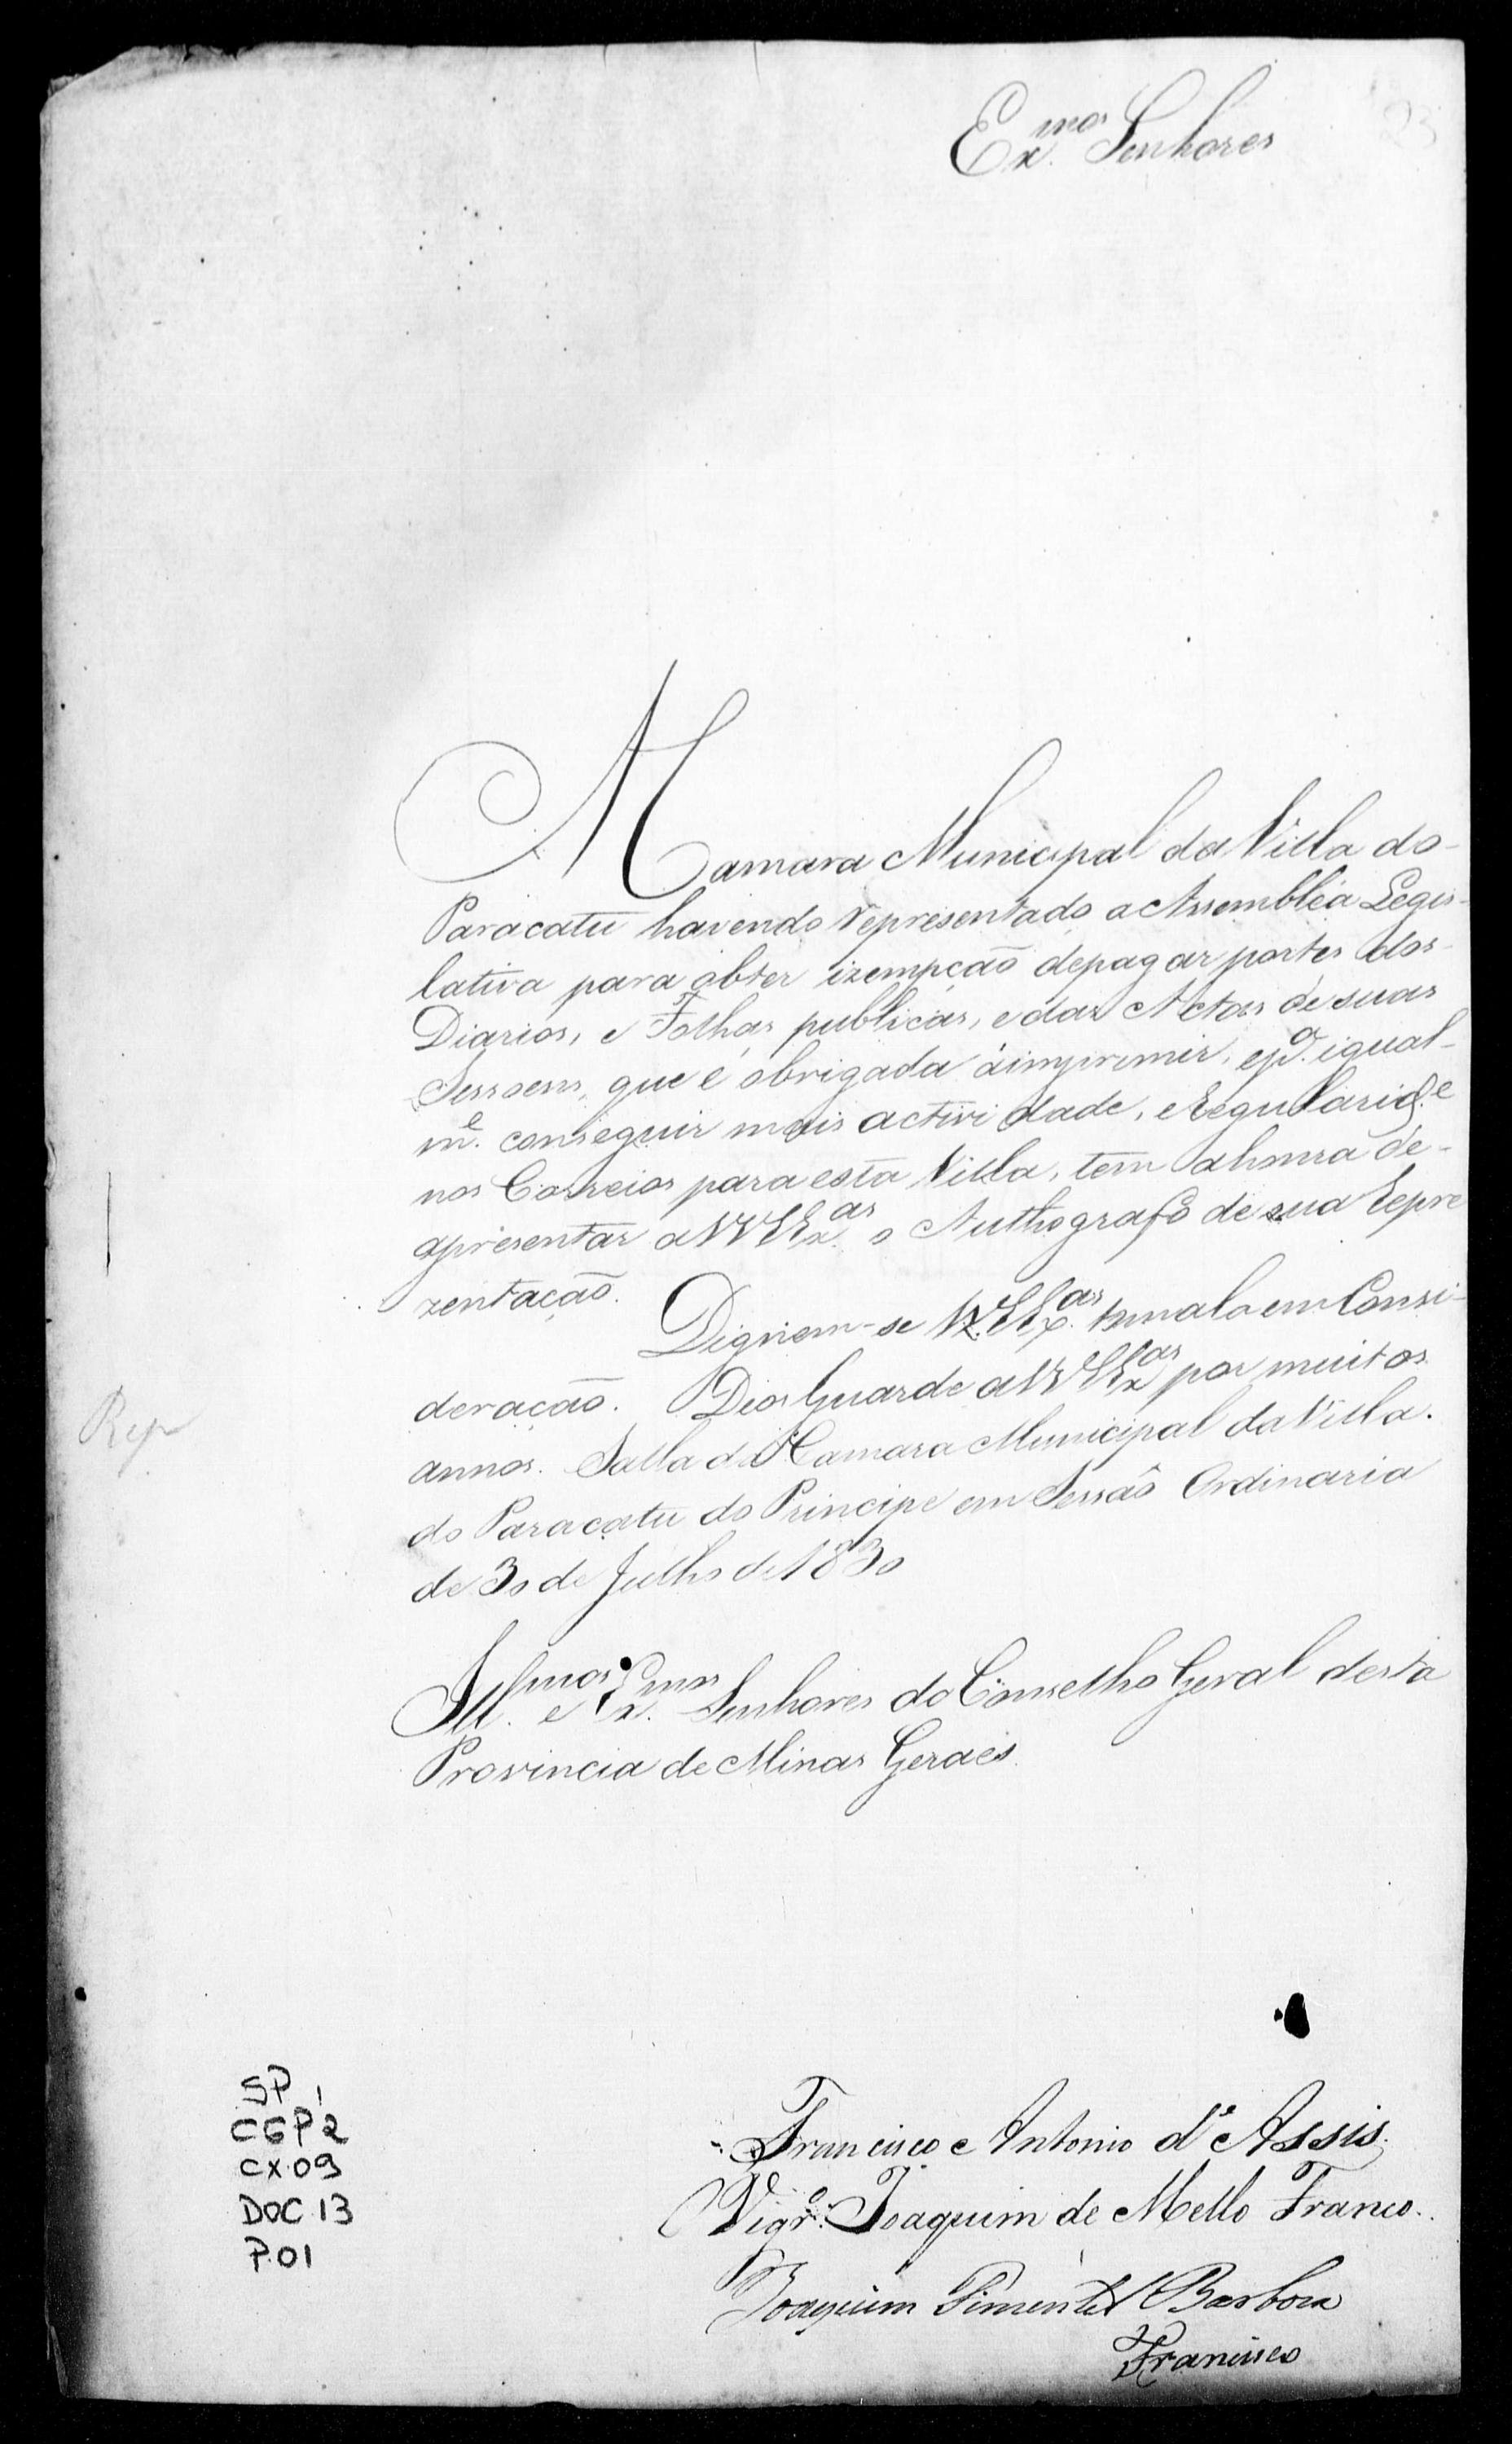 23
Ex.mos Senhores
A Camara Municipal da Villa do
Paracatu havendo representado a Assembléa Legis-
lativa para obter izempção de pagar portes dos
Diarios, e Folhas publicas, e das Actas de suas
Sessoens, que é obrigada á imprimir, e p.a igual-
m.e conseguir mais actividade, e Regularid.e
nos Correios para esta Villa, tem a honra de
apresentar a VV EEx.as o Authografo de sua Repre
zentação. Dignem-se VV. EEx.as tomala em Consi-
deração. Deos Guarde a VV EEx.as por muitos
annos. Salla da Camara Municipal da Villa
do Paracatu do Principe em Sessão Ordinaria
de 30 de Julho de 1830
Ill.mos e Ex.mos Senhores do Conselho Geral desta
Provincia de Minas Geraes
Rep
Francisco Antonio d'Assis.
Vigr.o Joaquim de Mello Franco.
Joaquim Pimentel Barboza
Francisco
SP
CGP 1 2
CX.09
DOC.13
P.01